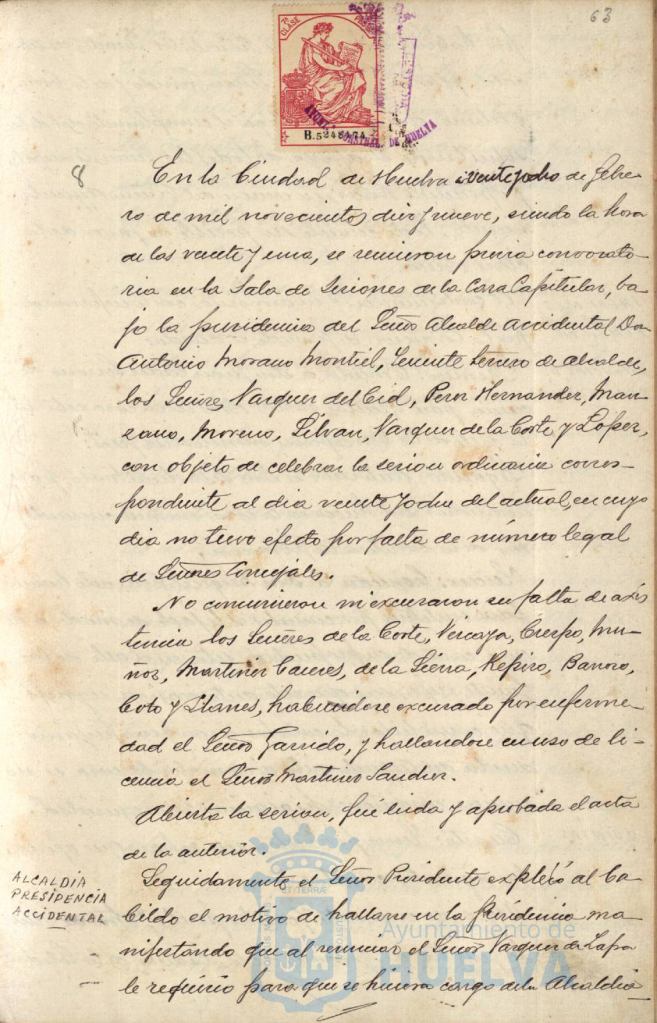 63
7ª CLASE
B.5248474
AYUNT. CONSTNAL. DE HUELVA
8
En la Ciudad de Huelva a veinte y ocho de Febre-
ro de mil novecientos diez y nueve, siendo la hora
de las veinte y una, se reunieron previa convocato-
ria en la Sala de Sesiones de la Casa Capitular, ba-
jo la presidencia del Señor Alcalde accidental Don
Antonio Morano Montiel, Teniente Tercero de alcalde,
los Señores Vazquez del Cid, Perez Hernandez, Man-
zano, Moreno, Silvan, Vazquez de la Corte y Lopez,
con objeto de celebrar la sesion ordinaria corres-
pondiente al dia veinte y del actual, en cuyo
dia no tuvo efecto por falta de número legal
de Señores Concejales.
No concurrieron ni excusaron su falta de asis
tencia los Señores de la Corte, Vizcaya, Crespo, Mu-
ñoz, Martinez Caceres, de la Sierra, Repiso, Barroso,
Coto y Llanes, habiendose excusado por enferme-
dad el Señor Garrido, y hallandose en uso de li-
cencia el Señor Martinez Sanchez.
Abierta la sesion, fué leida y aprobada el acta
de la anterior.
ALCALDIA
PRESIDENCIA
ACCIDENTAL
Seguidamente el Señor Presidente explicó al Ca-
bildo el motivo de hallarse en la presidencia ma-
nifestando que al renunciar el Señor Vazquez de Zafra
le requirio para que se hiciera cargo de la Alcaldia
Ayuntamiento de
HUELVA